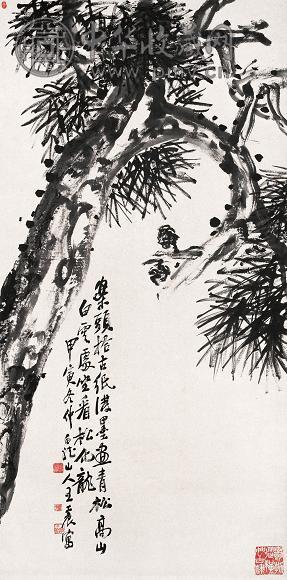 中华收藏网
案頭拾古紙潑墨畫青松高山
白雲處坐看松化龍
甲寅冬仲白龍山人王震寫